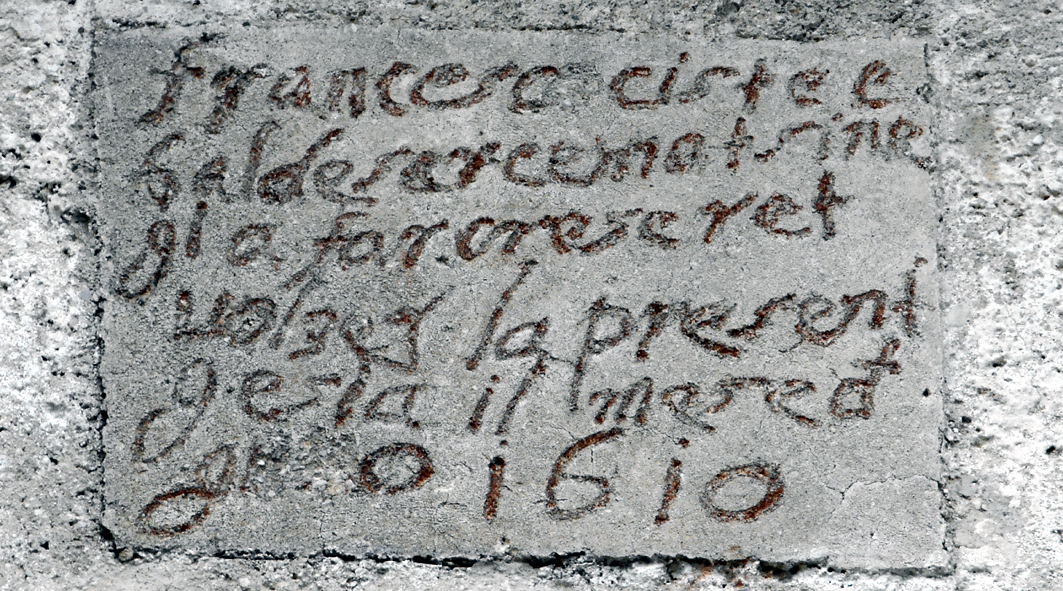 francesco cistee
baldesercematsine
gia faroreseret
volzey la present
gesia il mesed
gr 0 1610